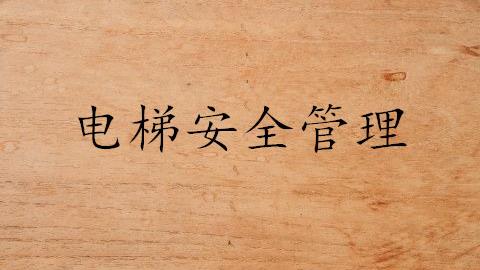 电梯安全管理